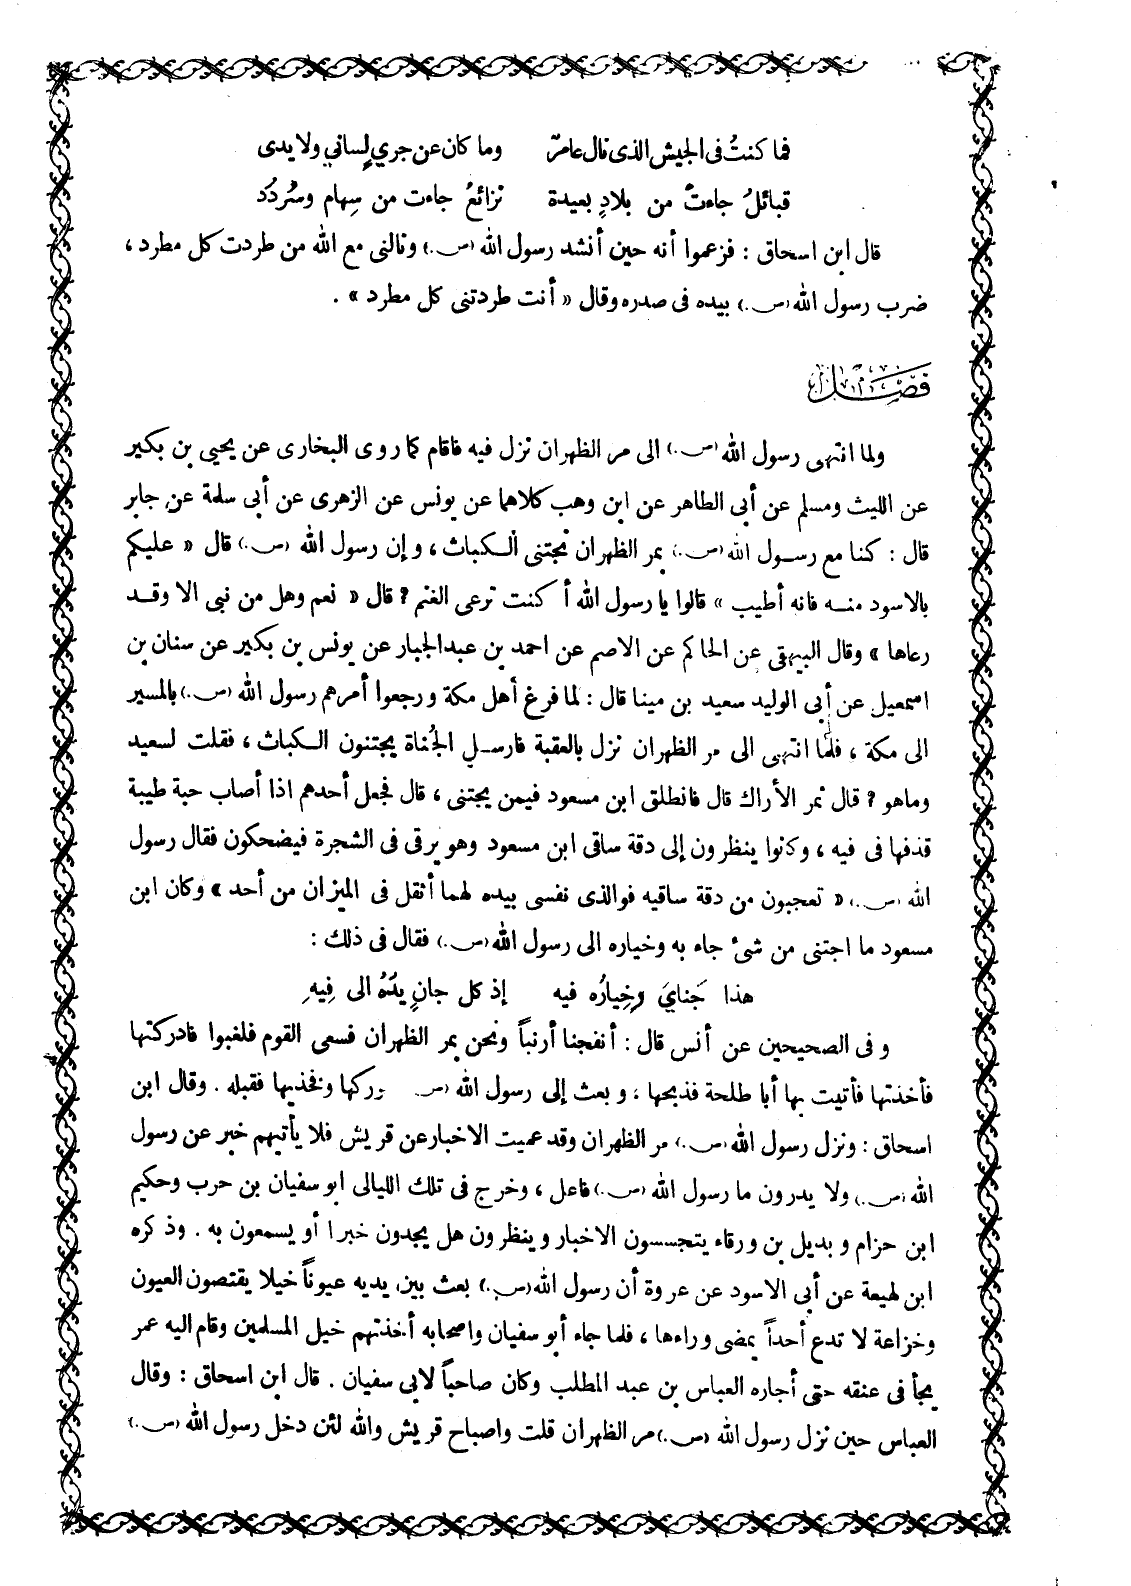 فما كنتُ فى الجيش الذى نال عامرً وما كان عن جري لِساني ولا يدى
قبائلُ جاءتْ من بلادٍ بعيدة نزائعُ جاءت من سِهام وسُردُد
قال ابن اسحاق : فزعموا أنه حين أنشد رسول الله (ص.) ونالنى مع الله من طردت كل مطرد ،
ضرب رسول الله (ص.) بيده فى صدره وقال « أنت طردتنى كل مطرد » .
فصل
ولما انتهى رسول الله (ص.) الى مر الظهران نزل فيه فاقام كما روى البخارى عن يحيى بن بكير
عن الليث ومسلم عن أبى الطاهر عن ابن وهب كلاهما عن يونس عن الزهرى عن أبى سلمة عن جابر
قال : كنا مع رسول الله (ص.) بمر الظهران نجتنى الكباث ، و إن رسول الله (ص.) قال « عليكم
بالاسود منه فانه أطيب » قالوا يا رسول الله أ كنت ترعى الغنم ? قال « نعم وهل من نبى الا وقد
رعاها » وقال البيهقى عن الحاكم عن الاصم عن احمد بن عبد الجبار عن يونس بن بكير عن سنان بن
اسمعيل عن أبى الوليد سعيد بن مينا قال : لما فرغ أهل مكة ورجعوا أمرهم رسول الله (ص.) بالمسير
الى مكة ، فلما انتهى الى مر الظهران نزل بالعقبة فارسل الجُناة يجتنون الكباث ، فقلت لسعيد
وماهو ? قال ثمر الأراك قال فانطلق ابن مسعود فيمن يجتنى ، قال فجعل أحدهم اذا أصاب حبة طيبة
قذفها فى فيه ، وكانوا ينظرون إلى دقة ساقى ابن مسعود وهو يرقى فى الشجرة فيضحكون فقال رسول
الله (ص.) « تعجبون من دقة ساقيه فوالذى نفسى بيده لهما أثقل فى الميزان من أحد » وكان ابن
مسعود ما اجتنى من شىء جاء به وخياره الى رسول الله (ص.) فقال فى ذلك :
هذا جَنايَ وخِيارُه فيه إذ كل جانٍ يدُهُ الى فِيهِ
و فى الصحيحين عن أنس قال : أنفجنا أرنباً ونحن بمر الظهران فسعى القوم فلغبوا فادركتها
فأخذتها فأتيت بها أبا طلحة فذبحها ، و بعث إلى رسول الله (ص. وركها وفخذيها فقبله . وقال ابن
اسحاق : ونزل رسول الله (ص.) مر الظهران وقد عميت الاخبار عن قريش فلا يأتيهم خبر عن رسول
الله (ص.) ولا يدرون ما رسول الله (ص.) فاعل ، وخرج فى تلك الليالى ابو سفيان بن حرب وحكيم
ابن حزام و بديل بن ورقاء يتجسسون الاخبار و ينظرون هل يجدون خبرا أو يسمعون به . وذكره
ابن لهيعة عن أبى الاسود عن عروة أن رسول الله (ص.) بعث بين يديه عيوناً خيلا يقتصون العيون
وخزاعة لا تدع أحداً يمضى وراءها ، فلما جاء أبو سفيان واصحابه أخذتهم خيل المسلمين وقام اليه عمر
يجأ فى عنقه حتى أجاره العباس بن عبد المطلب وكان صاحباً لابى سفيان . قال ابن اسحاق : وقال
العباس حين نزل رسول الله (ص.) مر الظهران قلت واصباح قريش والله لئن دخل رسول الله (ص.)